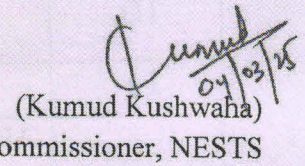 Kumud
04/03/25
(Kumud Kushwaha)
ommissioner, NESTS